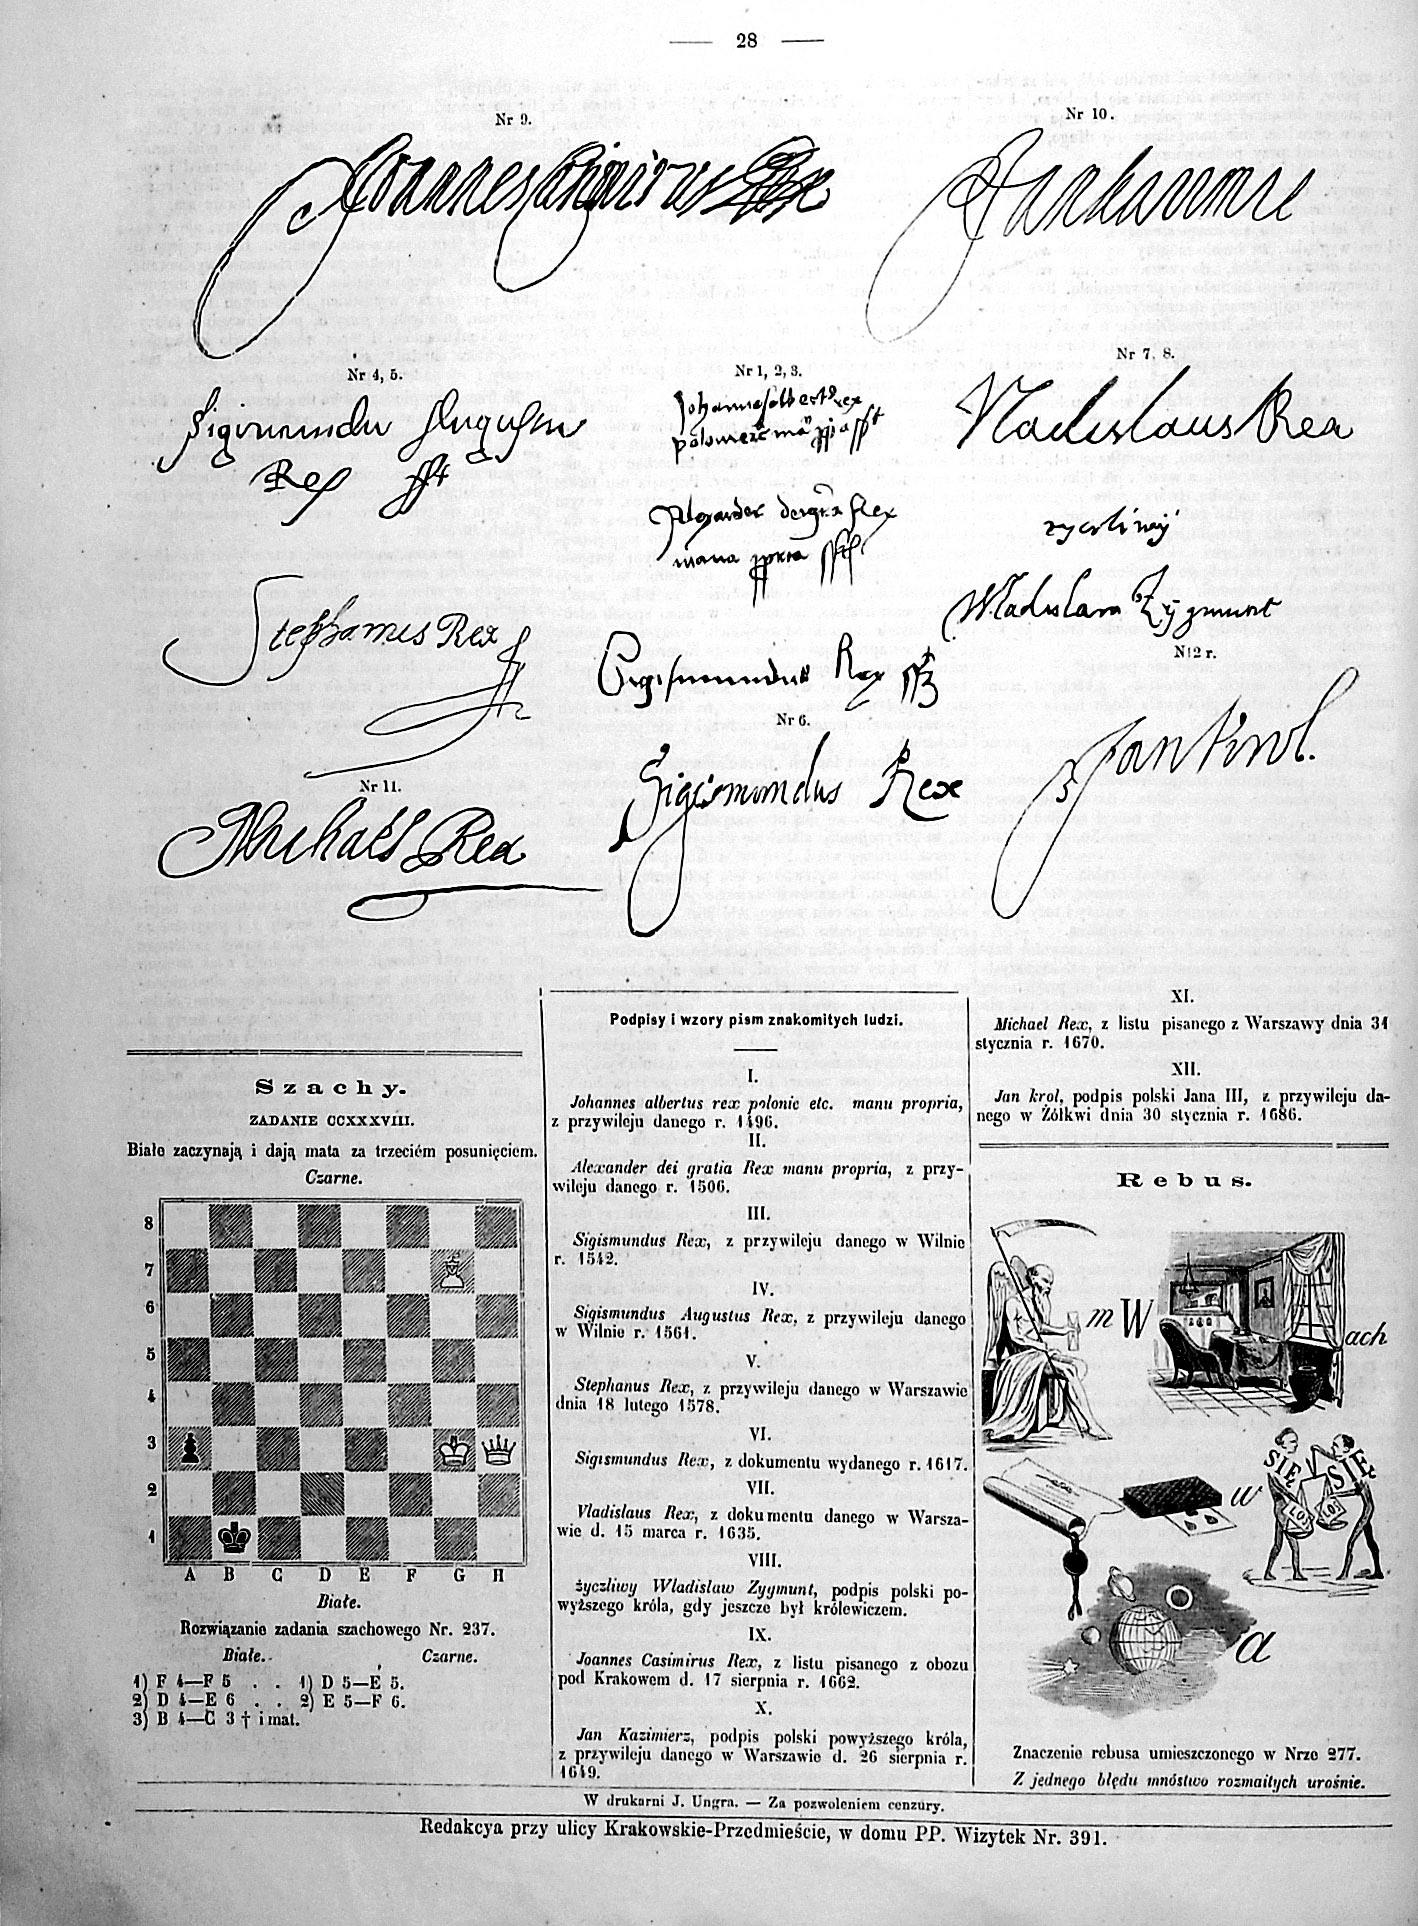 28
Nr 9.
Joannes Casimirus Rex
Nr 10.
Jan Kazimierz
Nr 4, 5.
Sigismundus Augustus
Rex
Stephanus Rex
Nr 11.
Michaël Rex
Nr 1, 2, 3.
Johannes albertus rex
polonie etc manu ppria sst
Alexander dei gra Rex
manu ppria
Sigismundus Rex
Nr 6.
Sigismundus Rex
Nr 7, 8.
Vladislaus Rex
zyczliwÿ
Wladislaw Zygmunt
N12 r.
Jan Krol.
Szachy.
ZADANIE CCXXXVIII.
Białe zaczynają i dają mata za trzeciém posunięciem.
Czarne.
8
7
6
5
4
3
2
1
A B C D E F G H
Białe.
Rozwiązanie zadania szachowego Nr. 237.
Białe. Czarne.
1) F 4—F 5 . . 1) D 5—E 5.
2) D 4—E 6 . . 2) E 5—F 6.
3) B 4—C 3 † i mat.
Podpisy i wzory pism znakomitych ludzi.
I.
Johannes albertus rex polonie etc. manu propria,
z przywileju danego r. 1496.
II.
Alexander dei gratia Rex manu propria, z przy-
wileju danego r. 1506.
III.
Sigismundus Rex, z przywileju danego w Wilnie
r. 1542.
IV.
Sigismundus Augustus Rex, z przywileju danego
w Wilnie r. 1561.
V.
Stephanus Rex, z przywileju danego w Warszawie
dnia 18 lutego 1578.
VI.
Sigismundus Rex, z dokumentu wydanego r. 1617.
VII.
Vladislaus Rex, z dokumentu danego w Warsza-
wie d. 15 marca r. 1635.
VIII.
życzliwy Wladislaw Zygmunt, podpis polski po-
wyższego króla, gdy jeszcze był królewiczem.
IX.
Joannes Casimirus Rex, z listu pisanego z obozu
pod Krakowem d. 17 sierpnia r. 1662.
X.
Jan Kazimierz, podpis polski powyższego króla,
z przywileju danego w Warszawie d. 26 sierpnia r.
1649.
XI.
Michael Rex, z listu pisanego z Warszawy dnia 31
stycznia r. 1670.
XII.
Jan krol, podpis polski Jana III, z przywileju da-
nego w Żółkwi dnia 30 stycznia r. 1686.
Rebus.
m W ach
w SIĘ SIĘ
a
Znaczenie rebusa umieszczonego w Nrze 277.
Z jednego błędu mnóstwo rozmaitych urośnie.
W drukarni J. Ungra. — Za pozwoleniem cenzury.
Redakcya przy ulicy Krakowskie-Przedmieście, w domu PP. Wizytek Nr. 391.